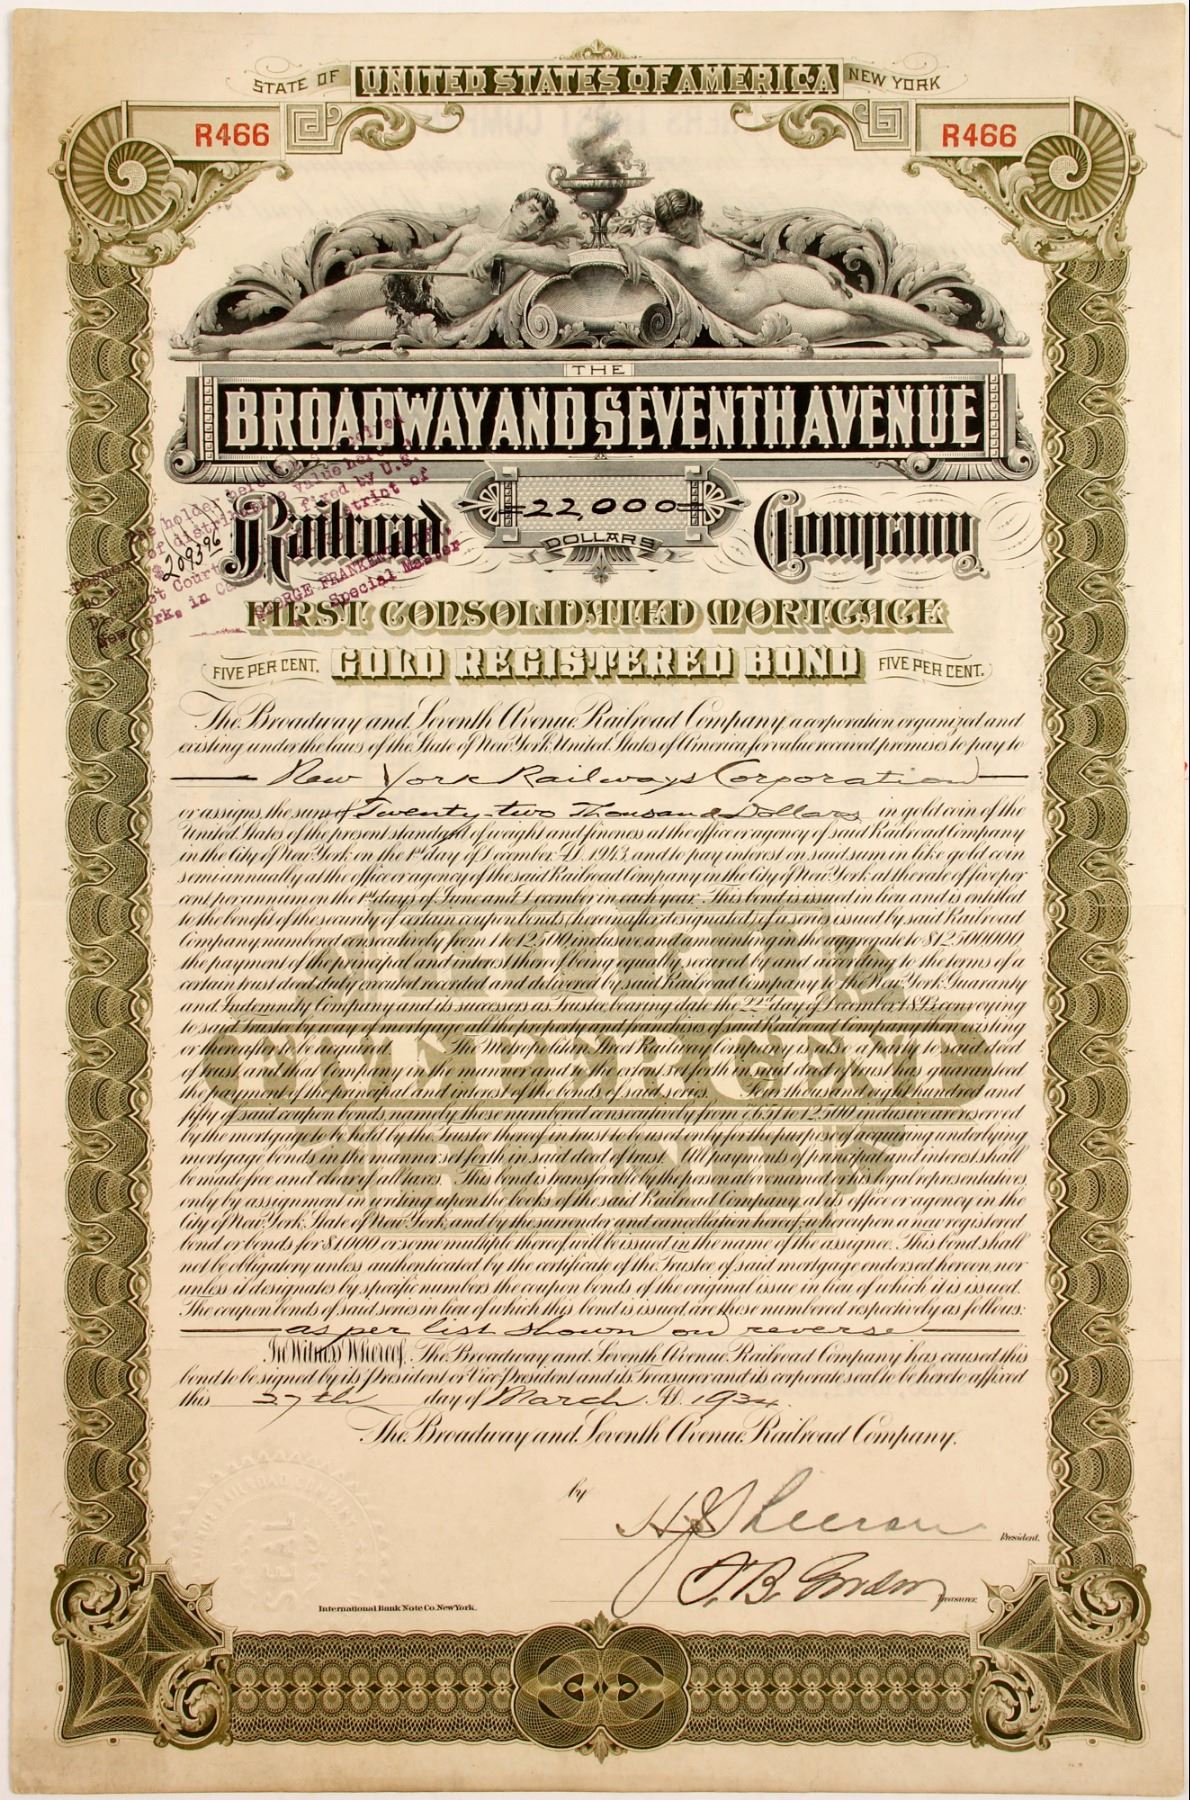 STATE OF UNITED STATES OF AMERICA NEW YORK
R466 R466
THE
BROADWAY AND SEVENTH AVENUE
22,000
Railroad Company
DOLLARS
FIRST CONSOLIDATED MORTGAGE
FIVE PER CENT. GOLD REGISTERED BOND FIVE PER CENT.
The Broadway and Seventh Avenue Railroad Company, a corporation organized and
existing under the laws of the State of New York, United States of America, for value received, promises to pay to
New York Railways Corporation
or assigns, the sum of Twenty-two Thousand Dollars in gold coin of the
United States of the present standard of weight and fineness at the office or agency of said Railroad Company
in the City of New York on the 1st day of December A.D. 1943, and to pay interest on said sum in like gold coin
semi annually at the office or agency of the said Railroad Company in the City of New York at the rate of five per
cent per annum on the 1st days of June and December in each year. This bond is issued in lieu and is entitled
to the benefit of the security of certain coupon bonds, (hereinafter designated) of a series issued by said Railroad
Company numbered consecutively from 1 to 12500, inclusive and amounting in the aggregate to $12,500,000,
the payment of the principal and interest thereof being equally secured by and according to the terms of a
certain trust deed duly executed recorded and delivered by said Railroad Company to the New York Guaranty
and Indemnity Company and its successors as Trustee bearing date the 22nd day of December 1893, conveying
to said Trustee by way of mortgage all the property and franchises of said Railroad Company then existing
or thereafter to be acquired. The Metropolitan Street Railway Company is also a party to said deed
of trust, and that Company in the manner and to the extent set forth in said deed of trust has guaranteed
the payment of the principal and interest of the bonds of said series. Four thousand eight hundred and
fifty of said coupon bonds namely these numbered consecutively from 7651 to 12500 inclusive are reserved
by the mortgage to be held by the Trustee thereof in trust to be used only for the purpose of acquiring underlying
mortgage bonds in the manner set forth in said deed of trust. All payments of principal and interest shall
be made free and clear of all taxes. This bond is transferable by the person above named or his legal representatives,
only by assignment in writing upon the books of the said Railroad Company, at its office or agency in the
City of New York, State of New York, and by the surrender and cancellation hereof; whereupon a new registered
bond or bonds for $1000 or some multiple thereof will be issued in the name of the assignee. This bond shall
not be obligatory unless authenticated by the certificate of the Trustee of said mortgage endorsed hereon, nor
unless it designates by specific numbers the coupon bonds of the original issue in lieu of which it is issued.
The coupon bonds of said series in lieu of which this bond is issued, are those numbered respectively as follows:
as per list shown on reverse
In Witness Whereof, The Broadway and Seventh Avenue Railroad Company has caused this
bond to be signed by its President or Vice-President and its Treasurer and its corporate seal to be hereto affixed
this 27th day of March A.D. 1934.
The Broadway and Seventh Avenue Railroad Company,
by
H J Sheeran President.
Treasurer.
SEAL
International Bank Note Co. New York.